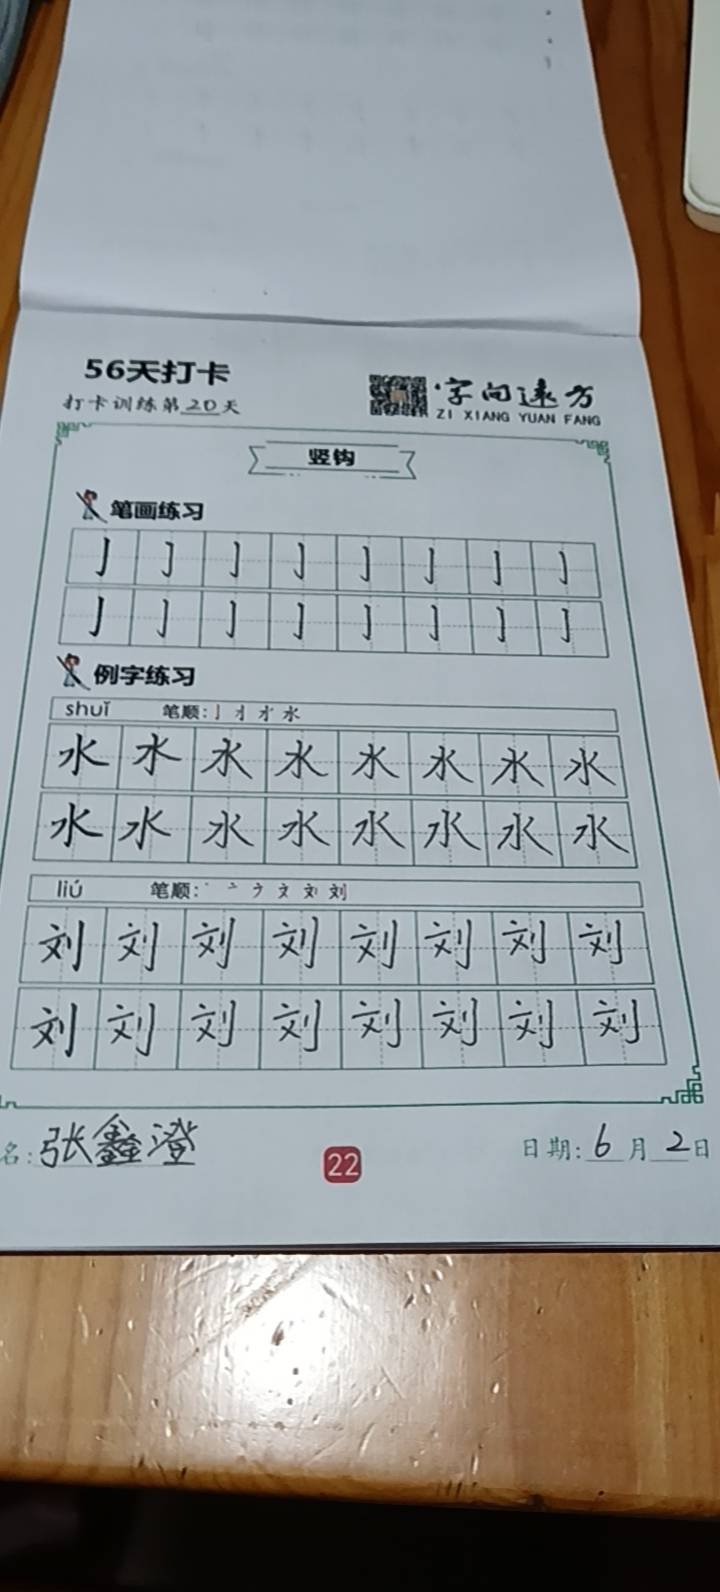 56天打卡
打卡训练第20天
字向远方
ZI XIANG YUAN FANG
竖钩
笔画练习
亅亅亅亅亅亅亅亅
亅亅亅亅亅亅亅亅
例字练习
shuǐ 笔顺:
水水水水水水水水
水水水水水水水水
liú 笔顺:
刘刘刘刘刘刘刘刘
刘刘刘刘刘刘刘刘
名:张鑫澄
22
日期:6月2日